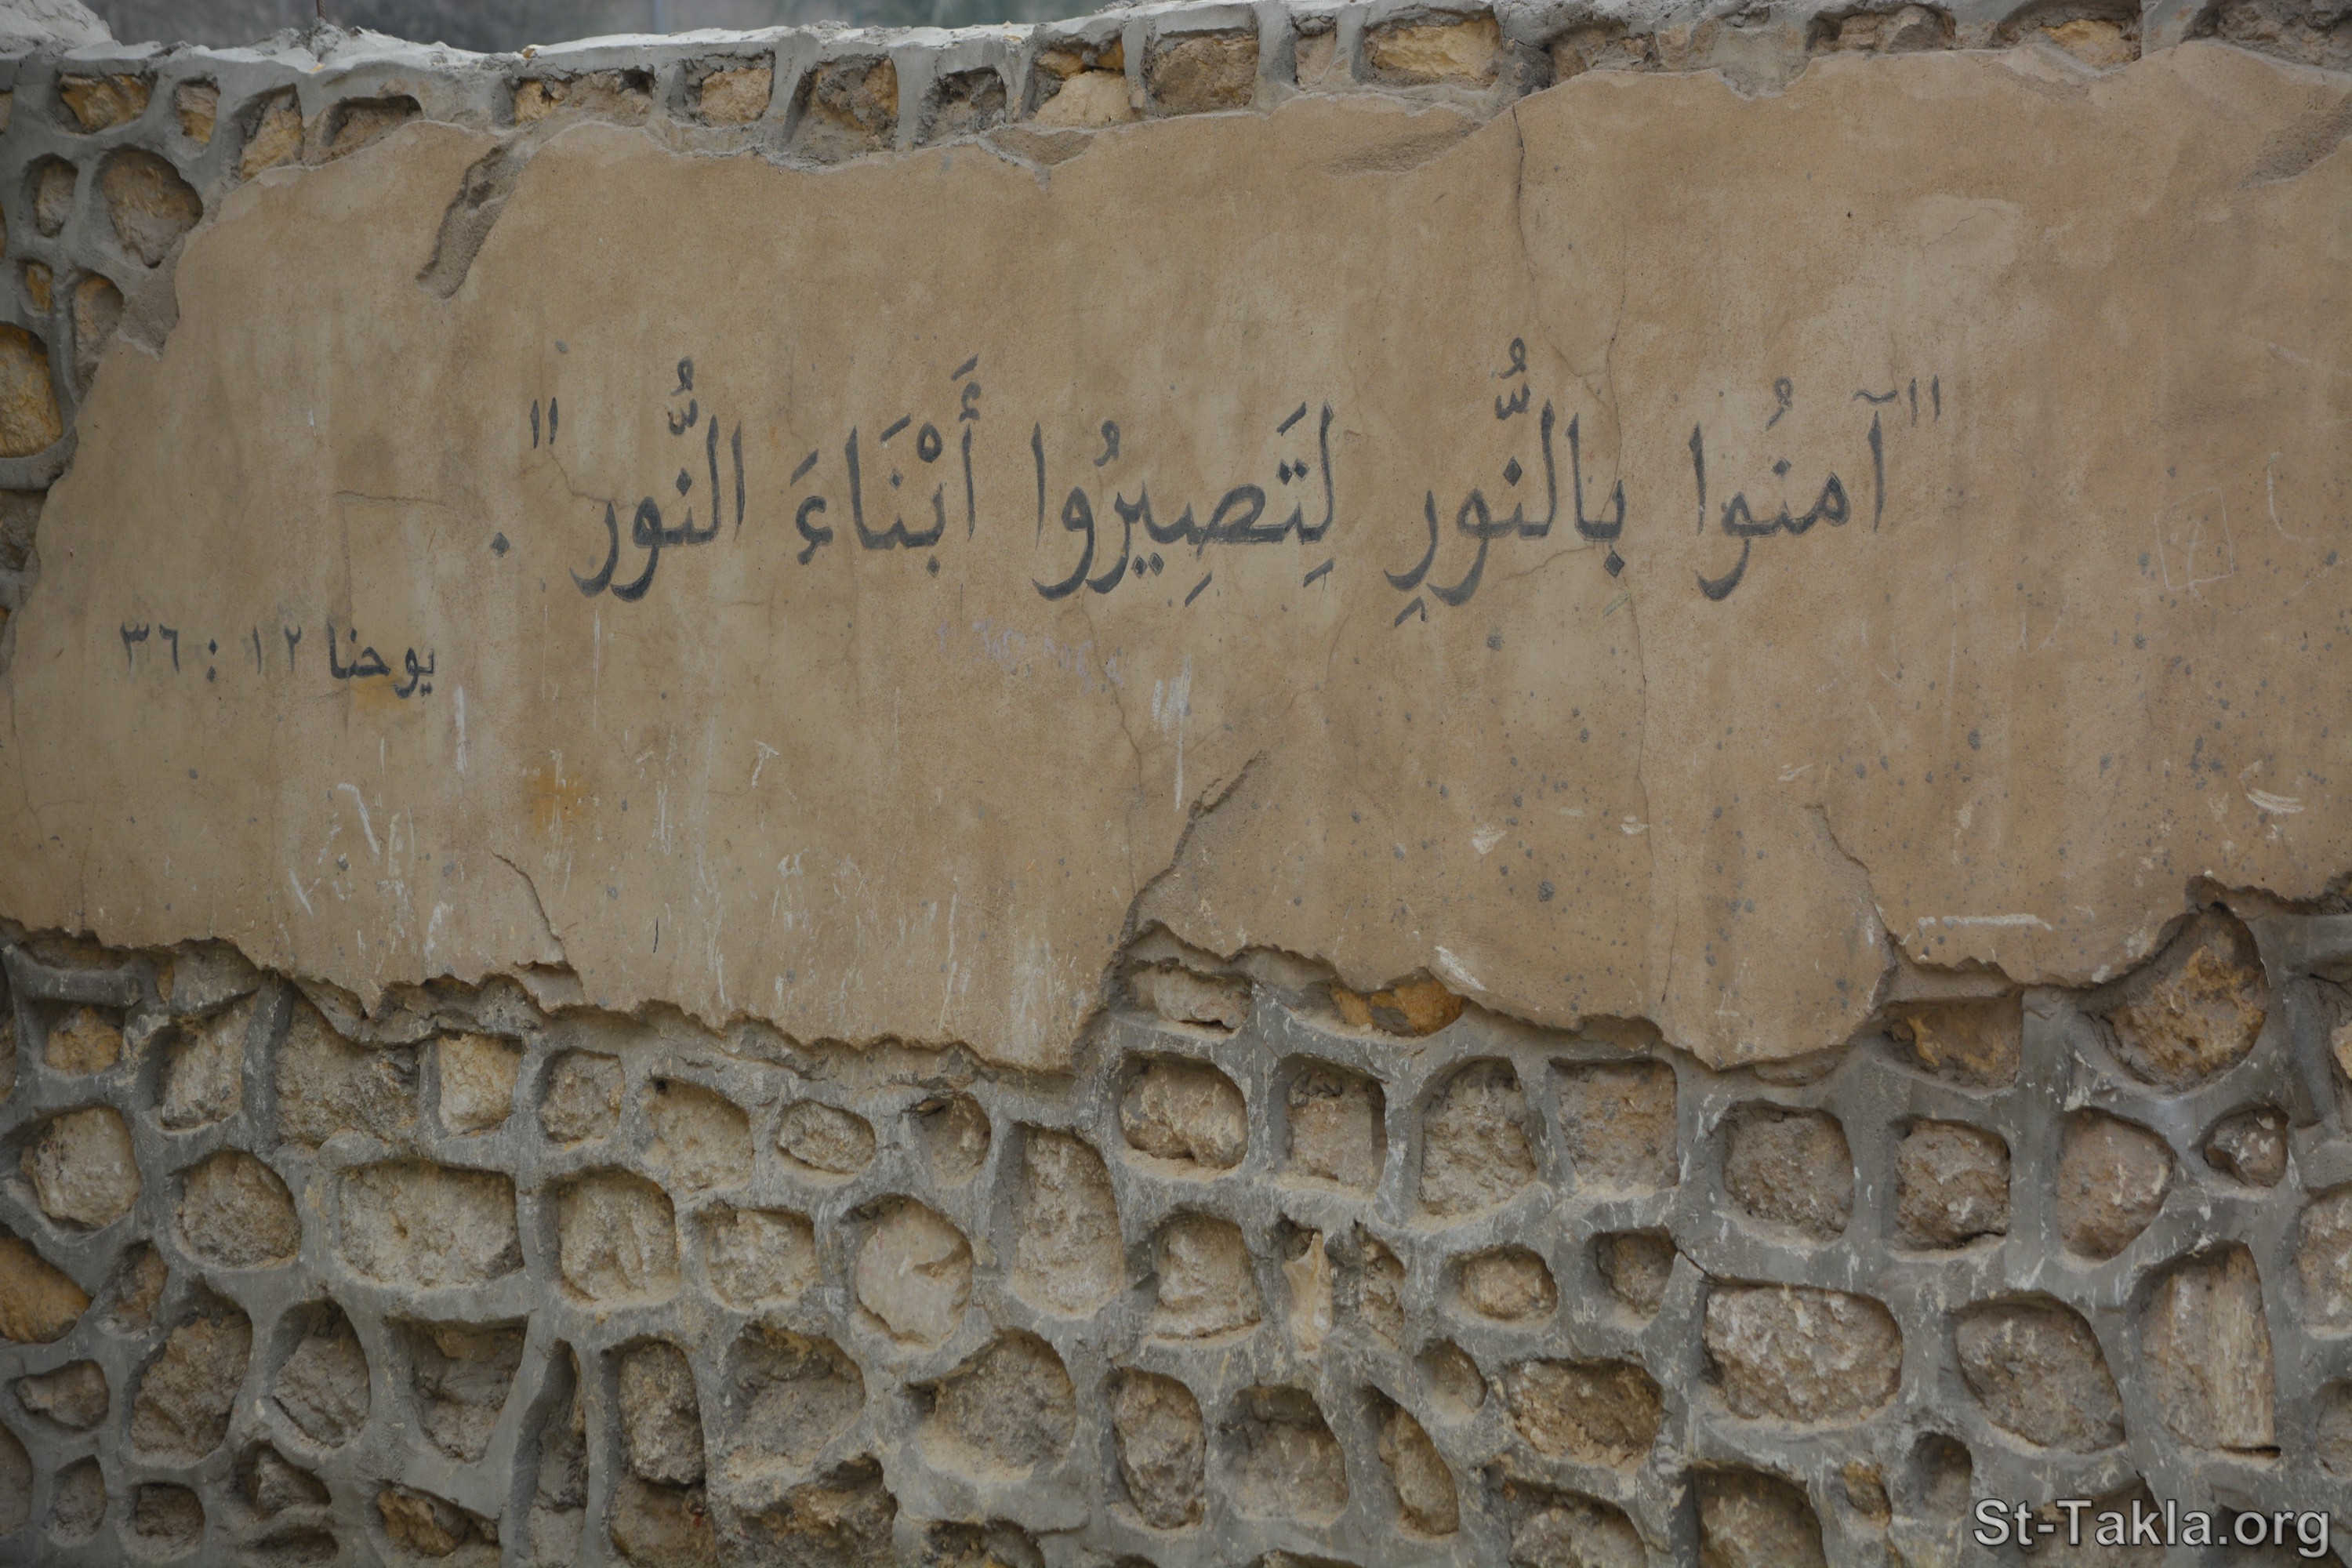 "آمنُوا بِالنُّورِ لِتَصِيرُوا أَبْنَاءَ النُّور".
يوحنا ١٢ : ٣٦
St-Takla.org